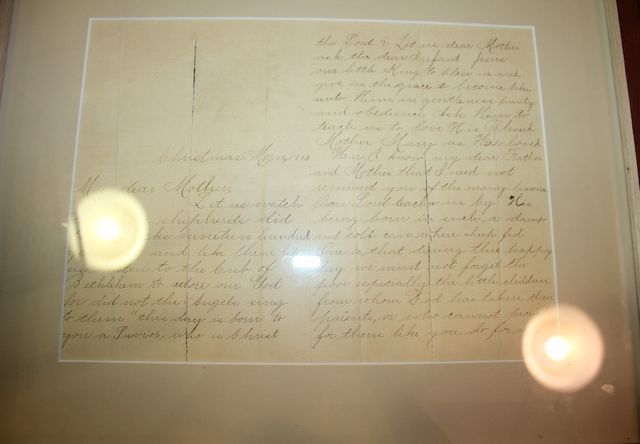 Christmas Morn, 1910
My dear Mother,
Let us watch
shepherds did
nineteen hundred
and like them
to the Crib of
Bethlehem to adore our God
for did not the Angels sing
to them "this day is born to
you a Savior, who is Christ
the Lord". Let us dear Mother
ask the dear Infant Jesus
our little King to bless us and
give us the grace to become like
unto Him in gentleness purity
and obedience. Ask Him to
teach us to love His Blessed
Mother Mary as He loved
Her. I know my dear Father
and Mother that I need not
remind you of the many lessons
Our Lord teaches us by His
being born in such a damp
and cold cave where sheep fed.
One is that during this happy
day we must not forget the
poor especially the little children
from whom God has taken their
parents, or who cannot
for them like you do for